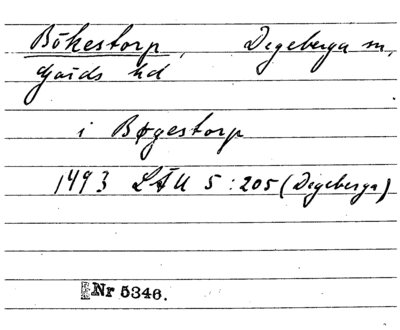 Bökestorp, Degeberga sn,
Gärds hd
i Bøgestorp
1493 LÄU 5:205 (Degeberga)
Nr 5346.